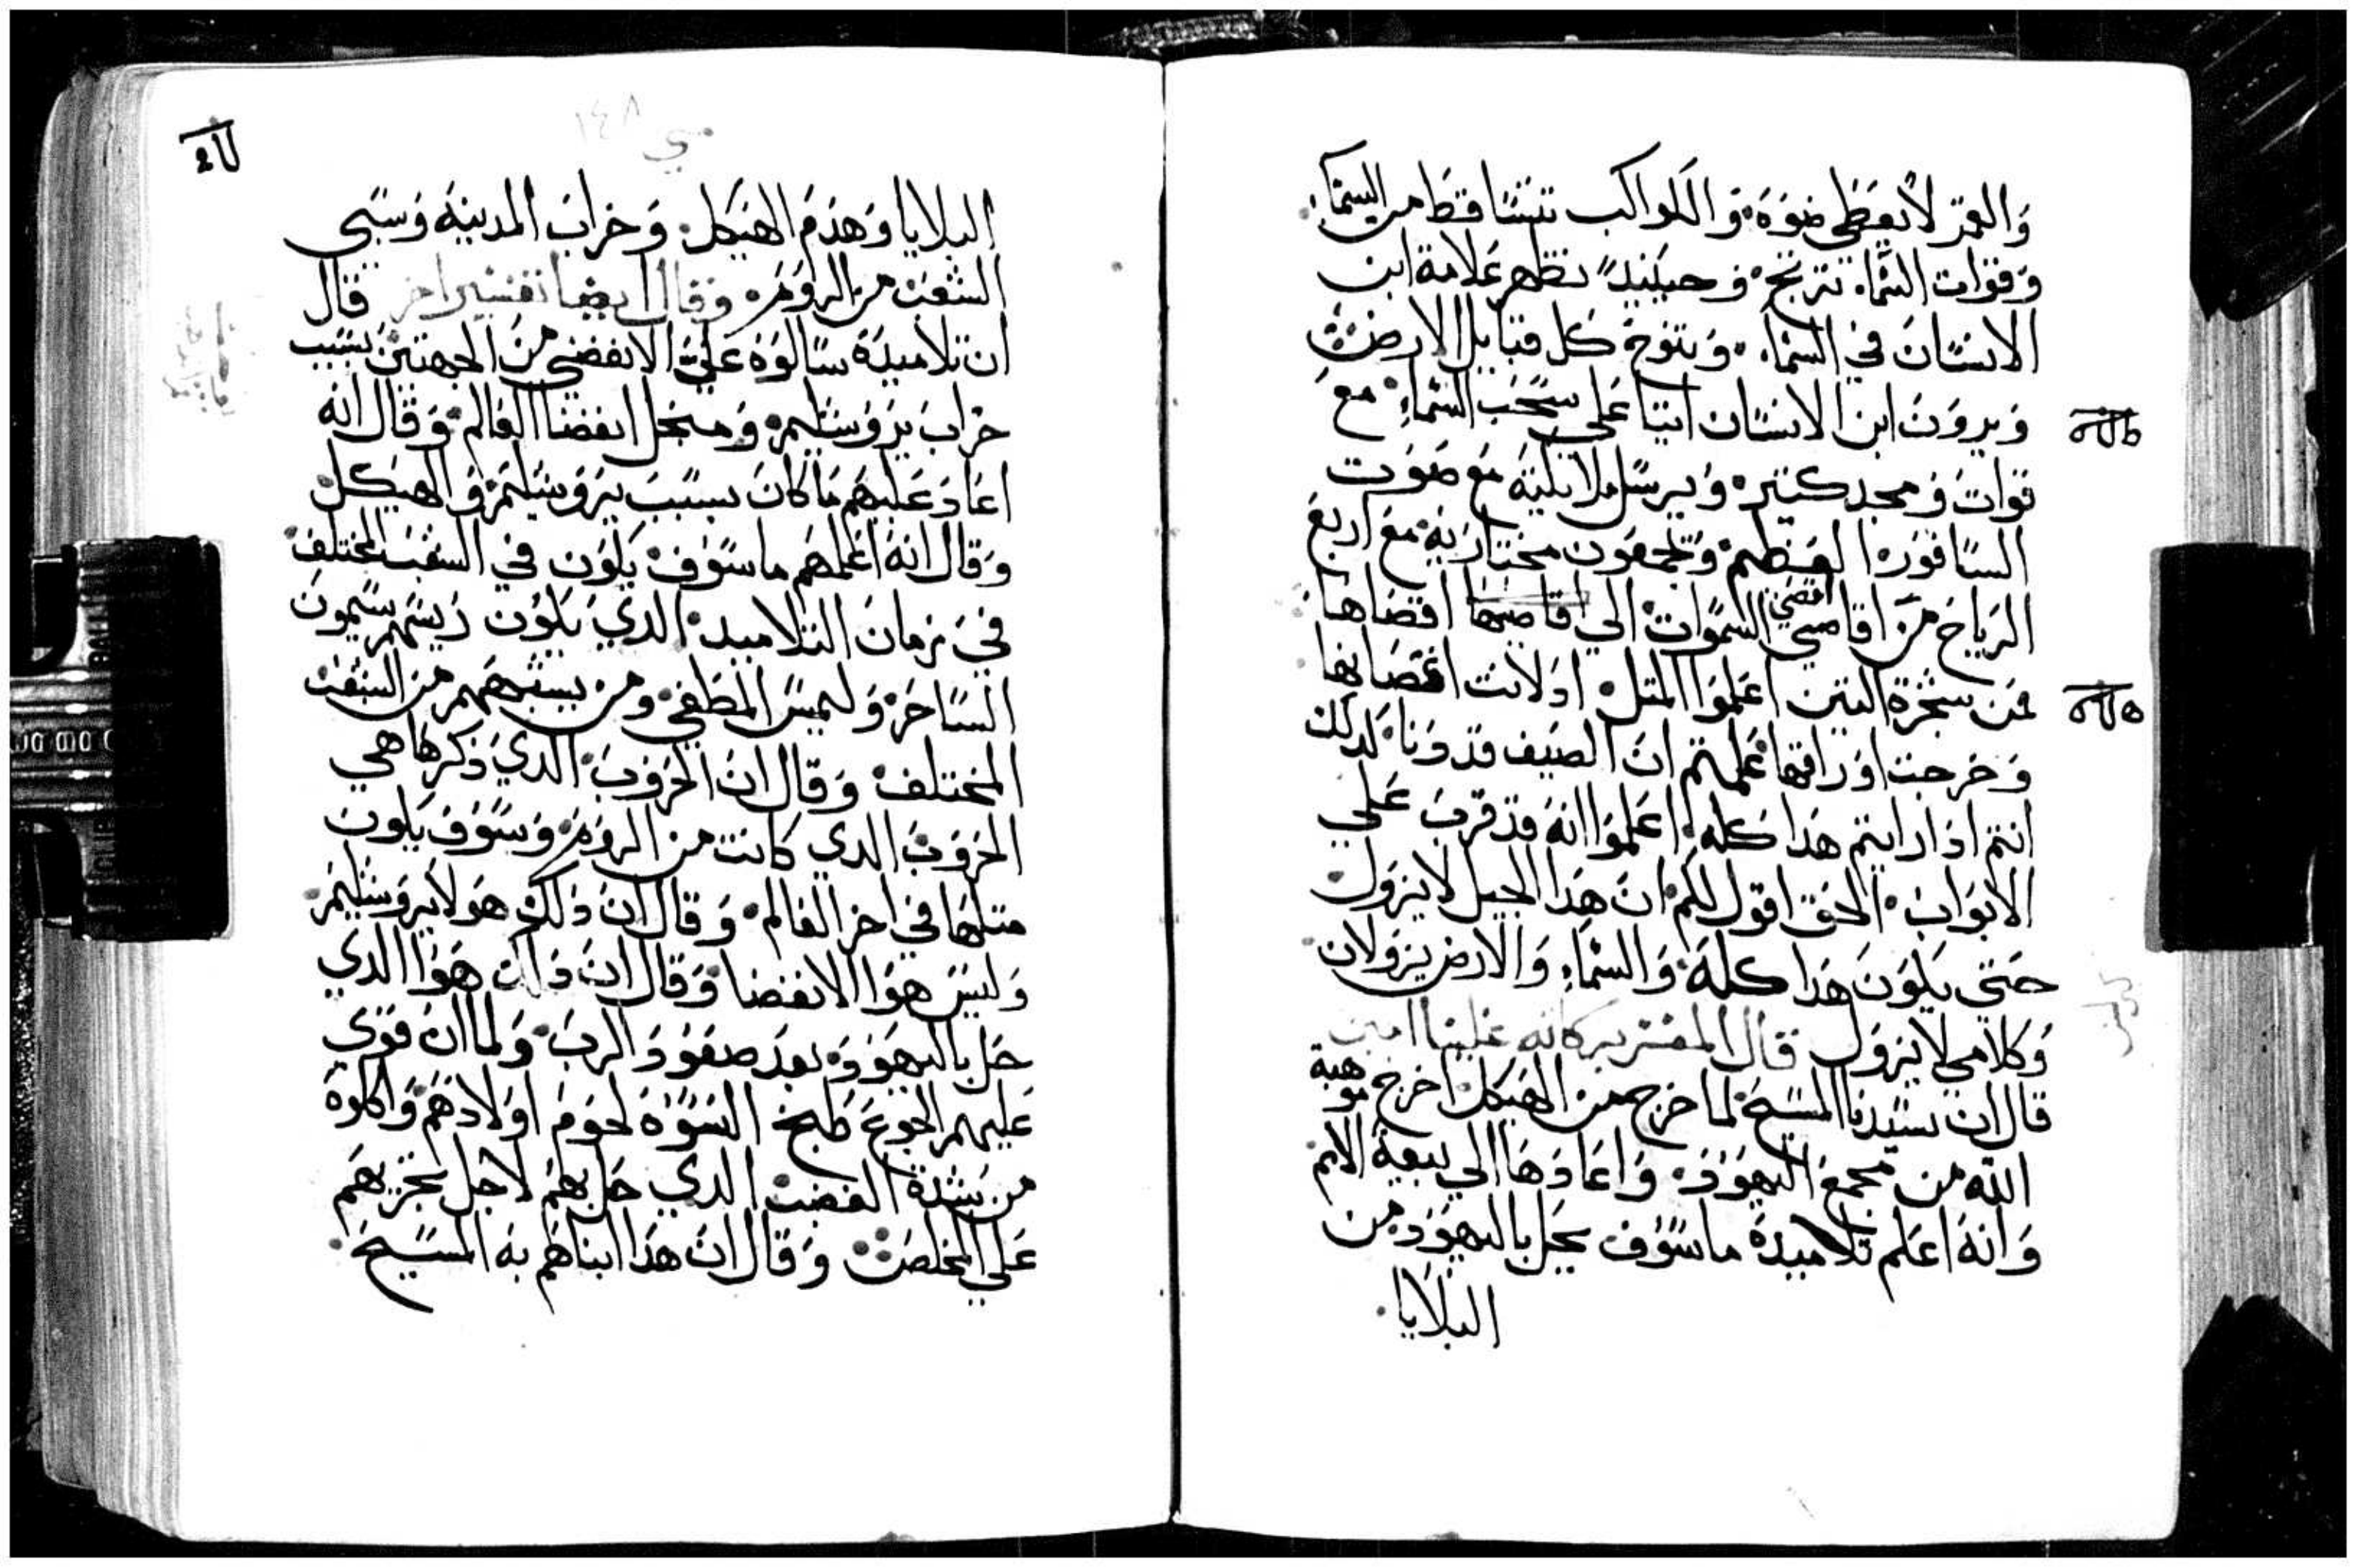 والقمر لا يعطي ضوه والكواكب تتساقط من السما
وقوات السما ترتج وحينيدً تظهر علامة ابن
الانسان في السما وتنوح كل قبايل الارض
ويرون ابن الانسان اتيا علي سحب السماء مع
قوات ومجد كتير ويرسل ملايكته مع صوت
السافوره العظيم ويجمعون مختاريه مع اربع
الرياح من اقاصي اقصي السموات الي اقاصيها اقصاها
فمن شجرة التين اعلموا المتل ادلانت اغصانها
وخرجت اوراقها علمتم ان الصيف قد دنا كدلك
انتم ادا رايتم هدا كله اعلموا انه قد قرب علي
الابواب الحق اقول لكم ان هدا الجيل لا يزول
حتي يكون هدا كله والسماء والارض يزولان
وكلامي لا يزول قال المفسر بركاته علينا امين
قال ان سيدنا المسيح لما خرج من الهيكل اخرج موهبة
الله من مجمع اليهود واعادها الي بيعة الامم
وانه اعلم تلاميده ما سوف يحل باليهود من
البلايا
١٤٨
البلايا وهدم الهيكل وخراب المدينه وسبي
الشعب من الروم وقال ايضا تفسير اخر قال
ان تلاميده سالوه علي الانقضي من الجهتين بسبب
خراب يروشليم ومنجل انقضا العالم وقال انه
اعاد عليهم ما كان بسبب يروشليم والهيكل
وقال انه اعلمهم ما سوف يكون في الشعب المختلف
في زمان التلاميد الدي يكون ريسهم سيمون
الساحر وليس المطغي ومن يشبههم من الشعب
المختلف وقال ان الحروب الدي ذكرها هي
الحروب الدي كانت من الروم وسوف يكون
متلها في اخر العالم وقال ان دلك هو لايروشليم
وليس هوا الانقضا وقال ان داك هوا الدي
حل باليهود بعد صعود الرب ولما ان قوي
عليهم الجوع طبخ النسوه لحوم اولادهم واكلوه
من شدة الغضب الدي حل بهم لاجل تجريهم
علي المخلص وقال ان هدا انباهم به المسيح